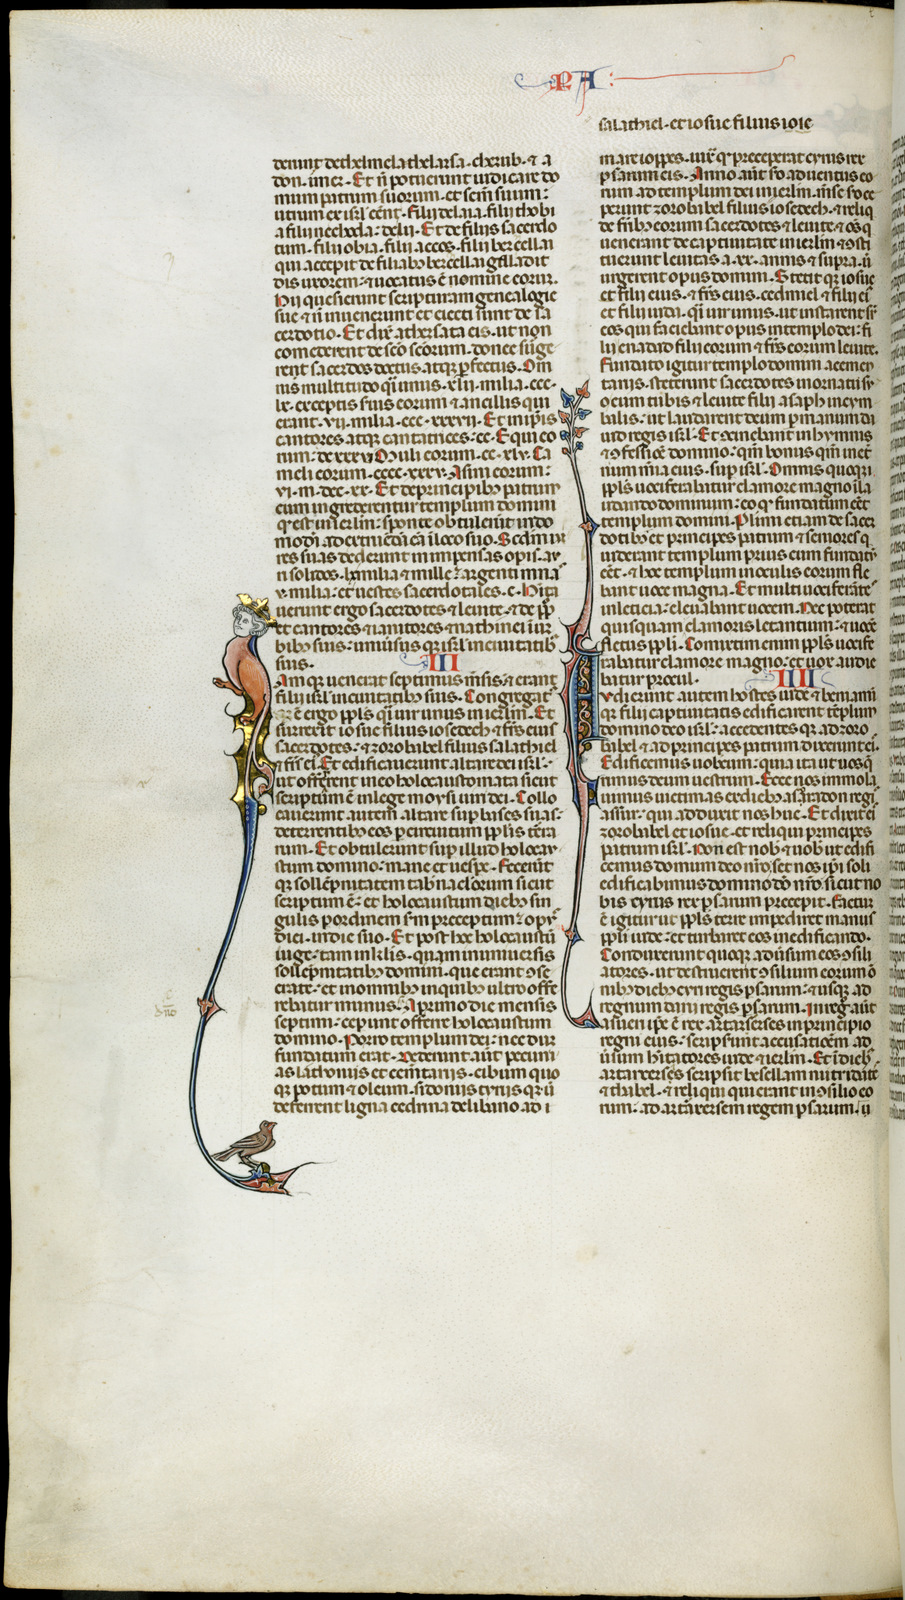 PA
salathiel · et iosue filius ioie
derunt dethelmela thelarsa · cherub · & a
don · imer · Et n̄ potuerunt iudicare do
mum patrum suorum · et sem̄ suum :
utrum ex isrl̄ cēnt · filii delaia · filii thobi
a filii nechoda : delii · Et de filiis sacerdo
tum · filii obia · filii accos · filii bercellai
qui accepit de filiab; bercellai galladit
dis uxorem : & uocatus ē nomine eorum
Hii quesierunt scripturam genealogie
sue & n̄ inuenerunt et eiecti sunt de sa
cerdotio · Et dix̄ athersata eis · ut non
comederent de sc̄o sc̄orum · donec surge
rent sacerdos doctus atq; ꝑfectus · Om
nis multitudo q̄i unus · xlii · milia · ccc ·
lx · exceptis suis eorum & ancillis qui
erant · vii · milia · ccc · xxxvii · Et in ip̄is
cantores atq; cantatrices · cc · Equi eo
rum : dc xxxvi Muli eorum · cc · xlv · Ca
meli eorum · cccc · xxxv · Asini eorum :
vi · m · dcc · xx · Et de principib; patrum
cum ingrederentur templum domini
q̄ est in ierl̄m : sponte obtulerunt in do
res suas dederunt in impensas opis · au
ri solidos · lx milia & mille : argenti mna
v · milia : et uestes sacerdotales · c · Hita
uerunt ergo sacerdotes & leuite · & de pp̄lo
et cantores & ianitores & nathinei in ur
bib; suis : uniu̾sus q; isrl̄ in ciuitatib;
suis · III
Iamq; uenerat septimus m̄sis & erant
filii isrl̄ in ciuitatib; suis · Congregat
ē ergo pp̄ls q̄i uir unus in ierl̄m · Et
surrexit iosue filius iosedech · & fr̄s eius
sacerdotes : & zorobabel filius salathiel
& fr̄s ei · Et edificauerunt altare dei isrl̄ :
ut offerrent in eo holocaustomata sicut
scriptum ē in lege moysi uiri dei · Collo
cauerunt autem altare sup bases suas :
deterrentib; eos ꝑ circuitum pp̄lis terra
rum · Et obtulerunt sup illud holocau
stum domino : mane et uesp̄e · Fecerunt
q; sollēpnitatem tabn̄aclorum sicut
scriptum ē : et holocaustum dieb; sin
gulis ꝑ ordinem s̄m preceptum : opus
diei · in die suo · Et post hec holocaustū
iuge : tam in kl̄is · quam in uniuersis
sollēpnitatib; domini · que erant ɔse
crate : et in omnib; in quib; ultro offe
rebatur munus · A primo die mensis
septimi : ceperunt offerre holocaustum
domino · Porro templum dei : nec dum
fundatum erat · Dederunt aūt pecuni
as lathomis et cem̄tariis · cibum quo
q; potum & oleum · sidoniis tyriis q; ut
deferrent ligna cedrina de libano ad i
mare ioppes · iux̄ q̄ preceperat cyrus rex
ꝑsarum eis · Anno aūt sc̄do aduentus eo
rum ad templum dei in ierl̄m · m̄se sc̄do ce
perunt zorobabel filius iosedech · & reliq
de fr̄ib; eorum sacerdotes & leuite · & os q̄
uenerant de captiuitate in ierl̄m & ɔsti
tuerunt leuitas a · xx · annis & supra · ut
urgerent opus domini · Stetit q; iosue
et filii eius · & fr̄s eius · cedmiel & filii ei
et filii iuda · q̄i uir unus · ut instarent sr̄
eos qui faciebant opus in templo dei : fi
lii enadad filii eorum & fr̄s eorum leuite ·
Fundato igitur templo domini a cemen
tariis · steterunt sacerdotes in ornatu su
o cum tubis & leuite filii asaph in cym
balis : ut laudarent deum ꝑ manum da
uid regis isrl̄ · Et ɔcinebant in hymnis
& ɔfessiōe domino : qm̄ bonus qm̄ in et̄
num mīa eius · sup isrl̄ · Omnis quoq;
pp̄ls uociferabatur clamore magno i̅ la
udando dominum : eo q̄ fundatum cēt
templum domini · Plurimi etiam de sacer
dotib; et principes patrum & seniores q̄
uiderant templum prius cum fundatū
cēt · & hoc templum in oculis eorum fle
bant uoce magna · Et multi uociferātes
in leticia : eleuabant uocem · Nec poterat
quisquam clamoris letantium : & uocē
fletus pp̄li · Commixtim enim pp̄ls uocife
rabatur clamore magno : et uox audie
batur procul · IIII
Audierunt autem hostes iude & beniamin
q̄ filii captiuitatis edificarent templum
domino deo isrl̄ : accedentes q; ad zoro
babel & ad principes patrum dixerunt ei ·
Edificemus uobcum : quia ita ut uos q̄
rimus deum uestrum · Ecce nos immola
uimus uictimas ex dieb; asaradon regi
assur : qui adduxit nos huc · Et dixit ei
zorobabel et iosue · et reliqui principes
patrum isrl̄ · Non est nob̄ & uob̄ ut edifi
cemus domum deo nr̄o · set nos ip̄i soli
edificabimus domino dō nr̄o · sicut no
bis cyrus rex ꝑsarum precepit · Factum
ē igitur ut pp̄ls terre impediret manus
pp̄li iude : et turbaret eos in edificando ·
Conduxerunt quoq; adu̾sum eos ɔsili
atores · ut destruerent ɔsilium eorum o
nib; dieb; cyri regis ꝑsarum : & usq; ad
regnum darii regis ꝑsarum · In reg̅ aūt
asueri ip̄e ē rex artarxerses in principio
regni eius : scripserunt accusatiōem ad
u̾sum hitatores iude & ierl̄m · Et i̅ dieb;
artarxerses scripsit besellam mitridates
& thabel · & reliqui qui erant in ɔsilio eo
rum : ad artaxersem regem ꝑsarum